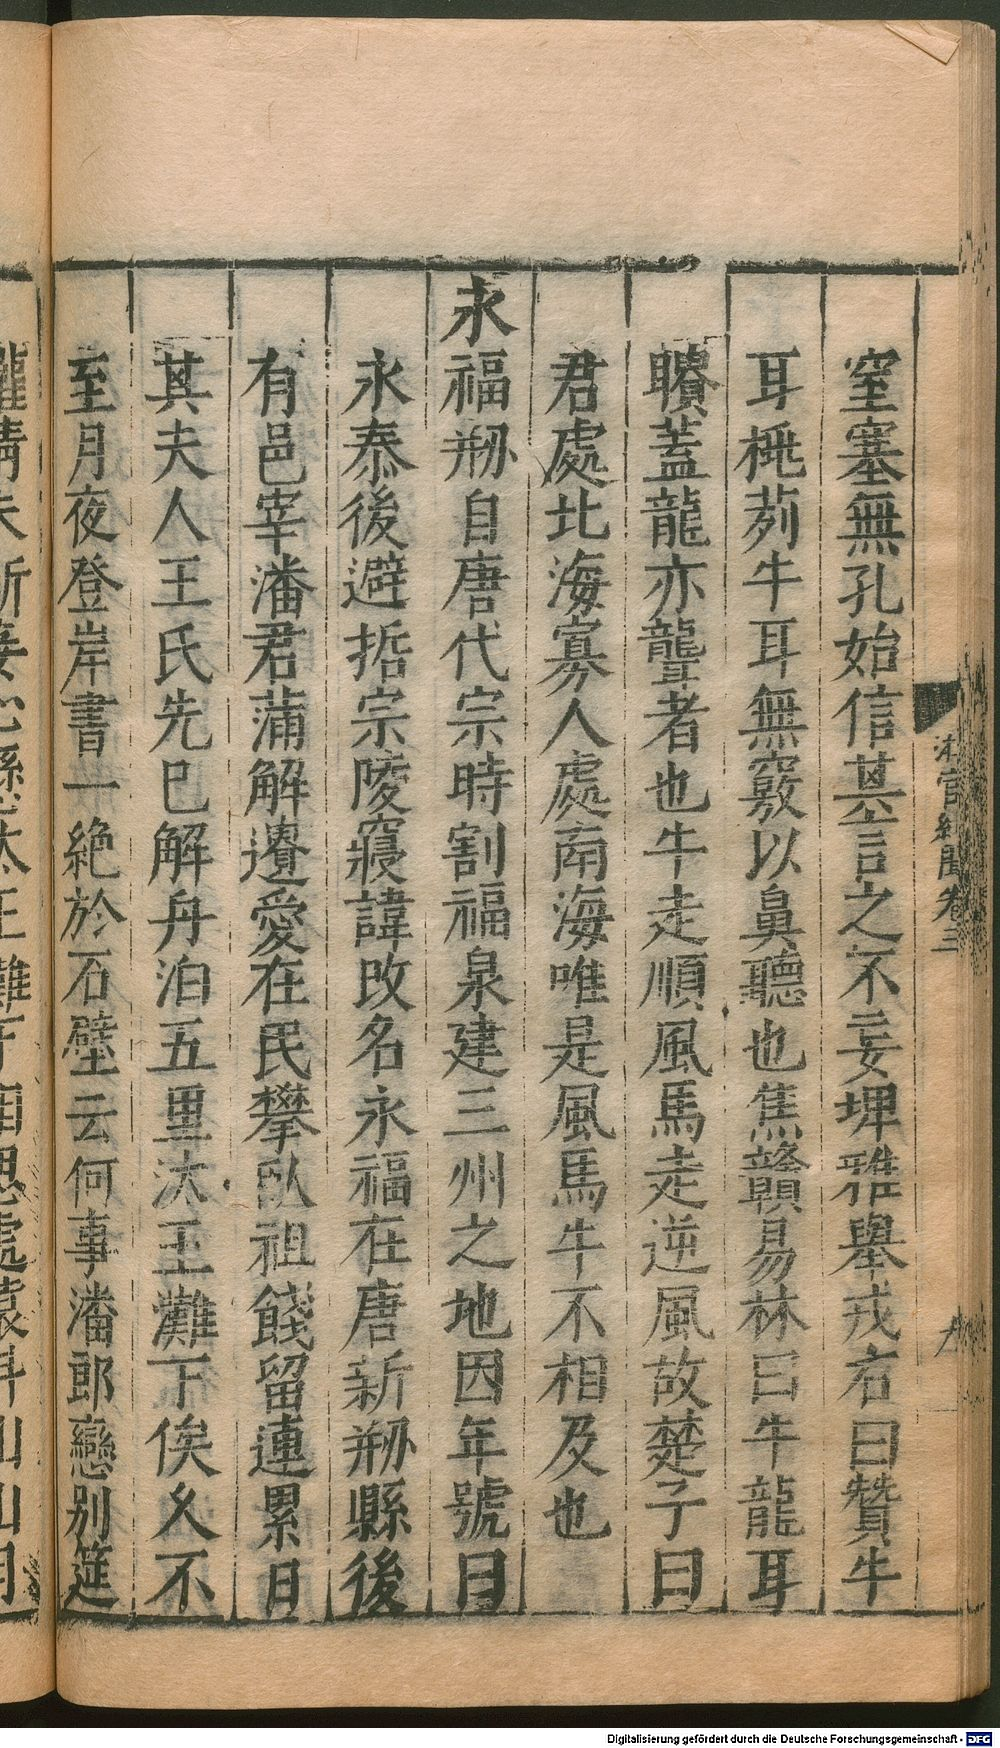 窒塞無孔始信其言之不妄埤雅舉戎右曰贊牛
耳桃茢牛耳無竅以鼻聽也焦贛易林曰牛龍耳
聵蓋龍亦聾者也牛走順風馬走逆風故楚子曰
君處北海寡人處南海唯是風馬牛不相及也
永福剏自唐代宗時割福泉建三州之地因年號曰
永泰後避哲宗陵寢諱改名永福在唐新剏縣後
有邑宰潘君蒲解遺愛在民攀臥祖餞留連累日
其夫人王氏先已解舟泊五里汰王灘下俟久不
至月夜登岸書一絶於石壁云何事潘郎戀別筵
聞卷三
Digitalisierung gefördert durch die Deutsche Forschungsgemeinschaft - DFG